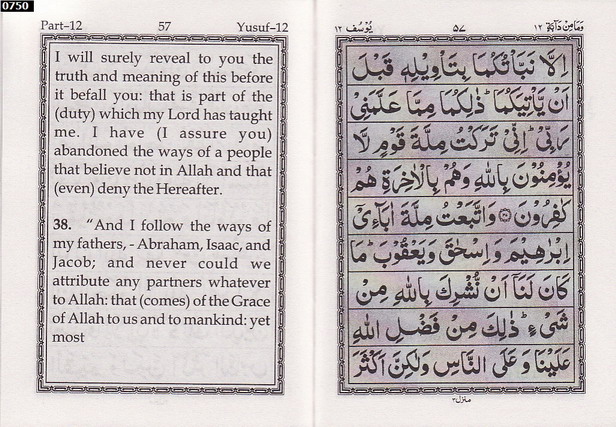 0750
Part–12 57 Yusuf–12
I will surely reveal to you the
truth and meaning of this before
it befall you: that is part of the
(duty) which my Lord has taught
me. I have (I assure you)
abandoned the ways of a people
that believe not in Allah and that
(even) deny the Hereafter.
38. “And I follow the ways of
my fathers, - Abraham, Isaac, and
Jacob; and never could we
attribute any partners whatever
to Allah: that (comes) of the Grace
of Allah to us and to mankind: yet
most
وَمَا مِنْ دَآبَّةٍ ١٢ ٥٧ يُوْسُف ١٢
اِلَّا نَبَّاْتُكُمَا بِتَاْوِيْلِهٖ قَبْلَ
اَنْ يَّاْتِيَكُمَا ؕ ذٰلِكُمَا مِمَّا عَلَّمَنِيْ
رَبِّيْ ؕ اِنِّيْ تَرَكْتُ مِلَّةَ قَوْمٍ لَّا
يُؤْمِنُوْنَ بِاللّٰهِ وَهُمْ بِالْاٰخِرَةِ هُمْ
كٰفِرُوْنَ ﴿٣٧﴾ وَاتَّبَعْتُ مِلَّةَ اٰبَآءِيْۤ
اِبْرٰهِيْمَ وَاِسْحٰقَ وَيَعْقُوْبَ ؕ مَا
كَانَ لَنَاۤ اَنْ نُّشْرِكَ بِاللّٰهِ مِنْ
شَيْءٍ ؕ ذٰلِكَ مِنْ فَضْلِ اللّٰهِ
عَلَيْنَا وَعَلَى النَّاسِ وَلٰكِنَّ اَكْثَرَ
منزل ٣